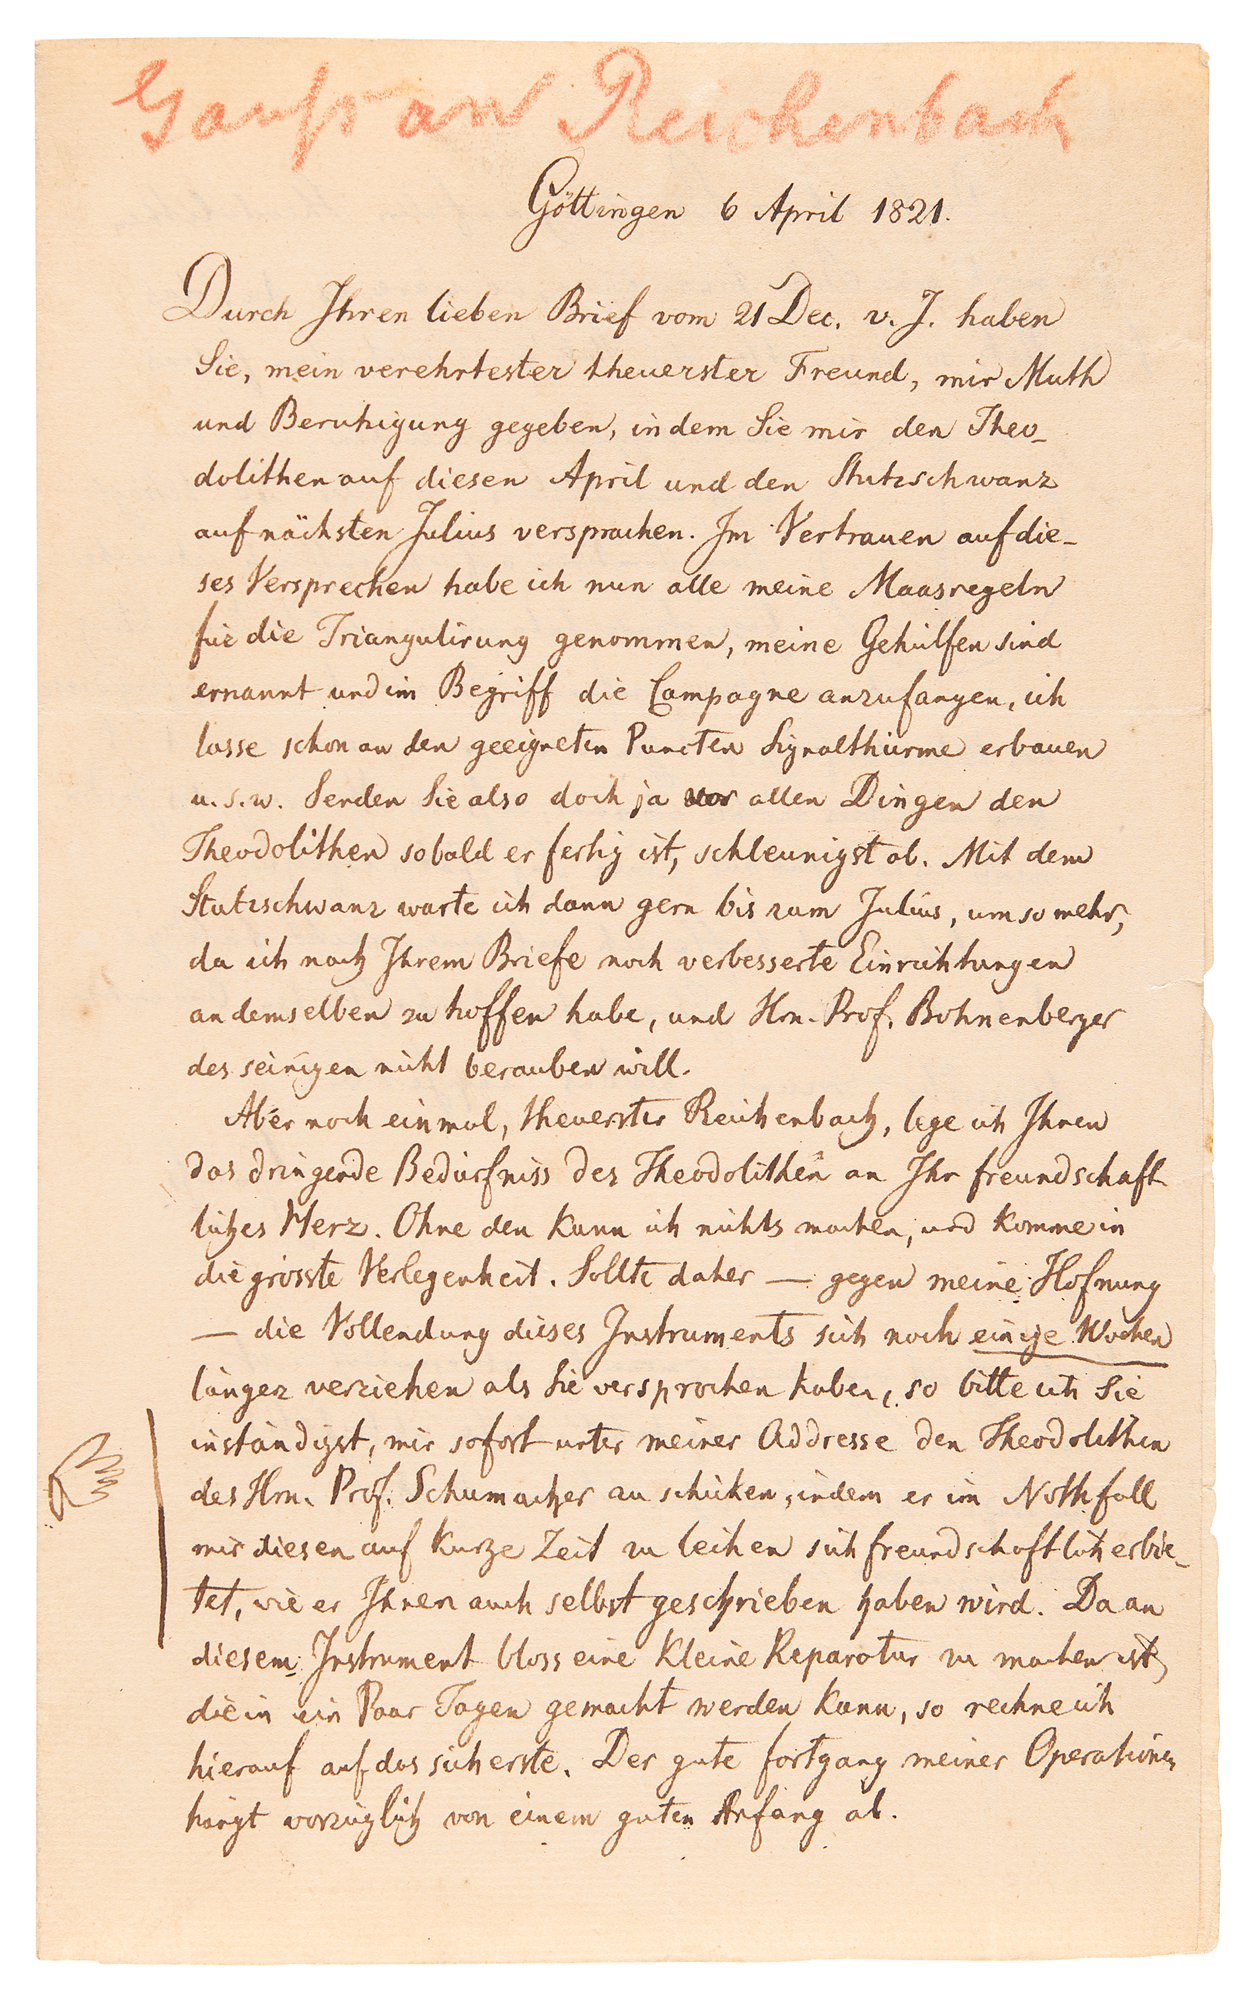 Gauss an Reichenbach
Göttingen 6 April 1821.
Durch Ihren lieben Brief vom 21 Dec. v. J. haben
Sie, mein verehrtester theuerster Freund, mir Muth
und Beruhigung gegeben, indem Sie mir den Theo-
dolithen auf diesen April und den Stutzschwanz
auf nächsten Julius versprachen. Im Vertrauen auf die-
ses Versprechen habe ich nun alle meine Maasregeln
für die Triangulirung genommen, meine Gehülfen sind
ernannt und im Begriff die Campagne anzufangen, ich
lasse schon an den geeigneten Puncten Signalthürme erbauen
u. s. w. Senden Sie also doch ja vor allen Dingen den
Theodolithen sobald er fertig ist, schleunigst ab. Mit dem
Stutzschwanz warte ich dann gern bis zum Julius, um so mehr,
da ich nach Ihrem Briefe noch verbesserte Einrichtungen
an demselben zu hoffen habe, und Hrn. Prof. Bohnenberger
des seinigen nicht berauben will.
Aber noch einmal, theuerster Reichenbach, lege ich Ihnen
das dringende Bedürfniss des Theodolithen an Ihr freundschaft-
liches Herz. Ohne den kann ich nichts machen, und komme in
die grösste Verlegenheit. Sollte daher — gegen meine Hofnung
— die Vollendung dieses Instruments sich noch einige Wochen
länger verziehen als Sie versprochen haben, so bitte ich Sie
inständigst, mir sofort unter meiner Addresse den Theodolithen
des Hrn. Prof. Schumacher zu schicken, indem er im Nothfall
mir diesen auf kurze Zeit zu leihen sich freundschaftlich erbie-
tet, wie er Ihnen auch selbst geschrieben haben wird. Da an
diesem Instrument bloss eine kleine Reparatur zu machen ist,
die in ein Paar Tagen gemacht werden kann, so rechne ich
hierauf auf das sicherste. Der gute Fortgang meiner Operationen
hängt vorzüglich von einem guten Anfang ab.